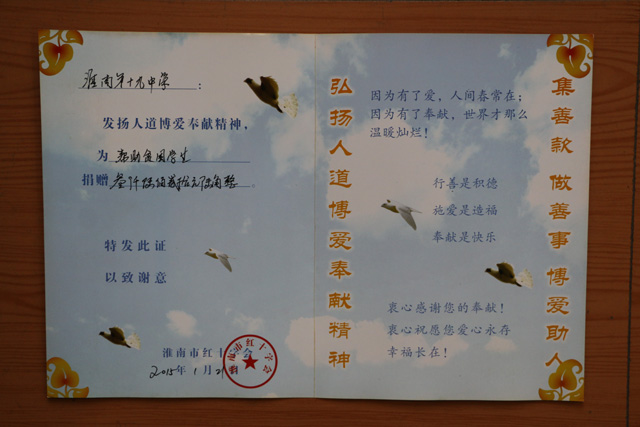 淮南第十九中学：
发扬人道博爱奉献精神，
为
捐赠 叁仟陆佰贰拾元陆角整。
特发此证
以致谢意
淮南市红十字会
2015年1月21
淮南市红十字会
弘扬人道博爱奉献精神
因为有了爱，人间春常在；
因为有了奉献，世界才那么
温暖灿烂！
行善是积德
施爱是造福
奉献是快乐
衷心感谢您的奉献！
衷心祝愿您爱心永存
幸福长在！
集善款 做善事 博爱助人